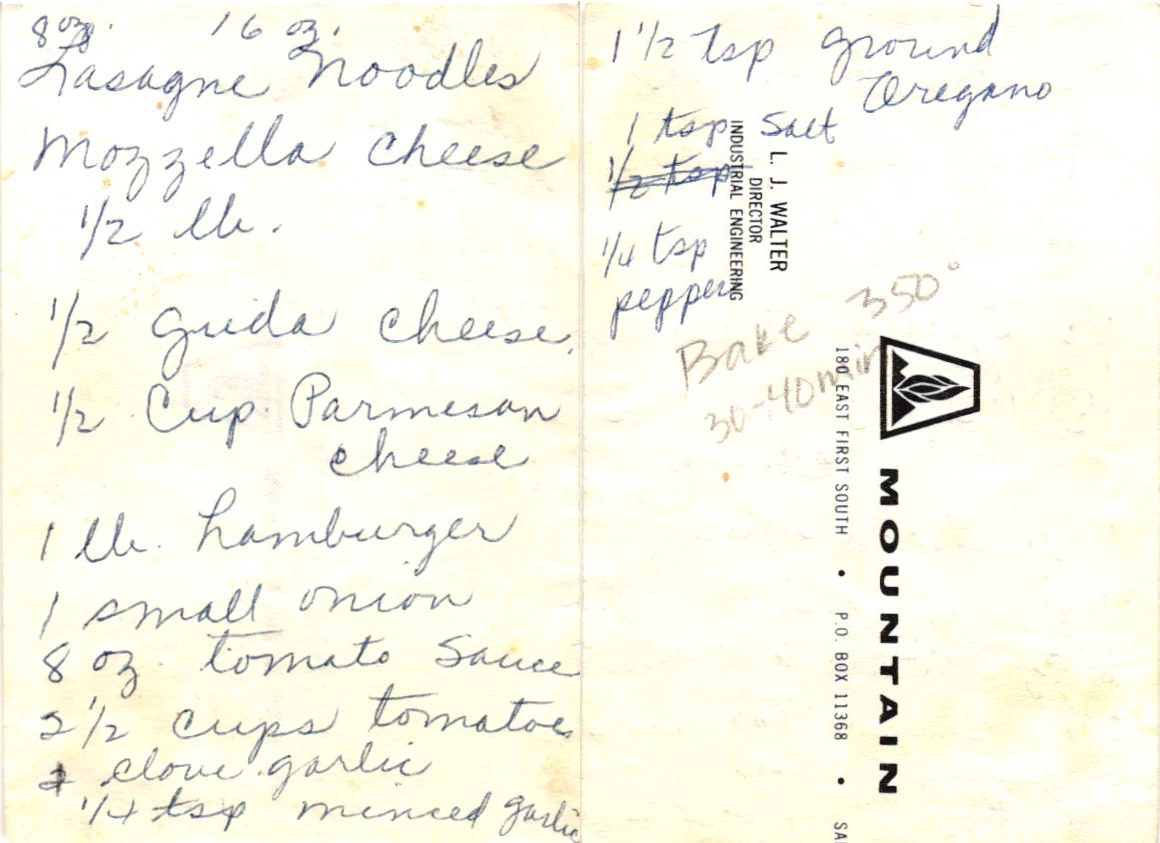 8 oz. 16 oz.
Lasagne Noodles
Mozzella cheese
1/2 lb.
1/2 guda cheese.
1/2 Cup Parmesan
cheese
1 lb. hamburger
1 small onion
8 oz. tomato sauce
2 1/2 cups tomatoes
clove garlic
1/4 tsp minced garlic
1 1/2 tsp ground
Oregano
1 tsp Salt
1/2 tsp
1/4 tsp
pepper
Bake 350°
30-40 min
L. J. WALTER
DIRECTOR
INDUSTRIAL ENGINEERING
MOUNTAIN
180 EAST FIRST SOUTH • P.O. BOX 11368 • SA